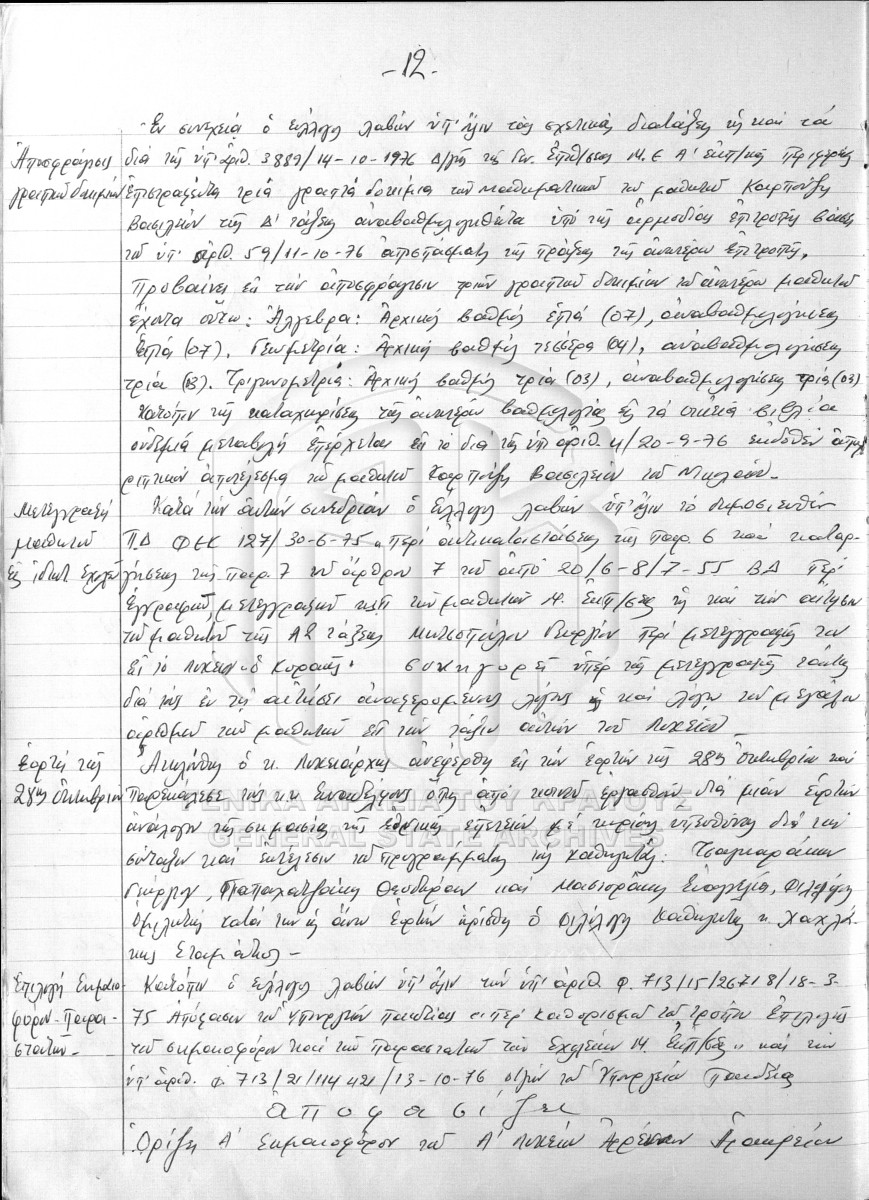 -12-
Ἐν συνεχείᾳ ὁ σύλλογος λαβὼν ὑπ' ὄψιν τὰς σχετικὰς διατάξεις ὡς καὶ τὰ
Ἀποσφράγισις
διὰ τῆς ὑπ' ἀριθ. 3889/14-10-1976 Δ/γῆς τῆς Γεν. Ἐπιθ/σεως Μ.Ε Α' ἐκπ/κῆς περιφερείας
γραπτῶν δοκιμίων
ἐπιστραφέντα τρία γραπτὰ δοκίμια τῶν μαθηματικῶν τοῦ μαθητοῦ
Βασιλείου τῆς Δ' τάξεως ἀναβαθμολογηθέντα ὑπὸ τῆς ἁρμοδίου ἐπιτροπῆς βάσει
τοῦ ὑπ' ἀριθ. 59/11-10-76 ἀποσπάσματος τῆς πράξεως τῆς ἀνωτέρω ἐπιτροπῆς,
Προβαίνει εἰς τὴν ἀποσφράγισιν τριῶν γραπτῶν δοκιμίων τοῦ ἀνωτέρω μαθητοῦ
ἔχοντα οὕτω: Ἄλγεβρα: Ἀρχικὸς βαθμὸς ἑπτά (07), ἀναβαθμολογήσεως
ἑπτά (07). Γεωμετρία: Ἀρχικὸς βαθμὸς τέσσερα (04), ἀναβαθμολογήσεως
τρία (03). Τριγωνομετρία: Ἀρχικὸς βαθμὸς τρία (03), ἀναβαθμολογήσεως τρία (03)
Κατόπιν τῆς καταχωρίσεως τῆς ἀνωτέρω βαθμολογίας εἰς τὰ οἰκεῖα βιβλία
οὐδεμία μεταβολὴ ἐπέρχεται εἰς τὸ διὰ τῆς ὑπ' ἀριθ. 4/20-9-76 ἐκδοθὲν ἀπορ
ριπτικὸν ἀποτέλεσμα τοῦ μαθητοῦ Βασιλείου τοῦ
Μετεγγραφὴ
Κατὰ τὴν αὐτὴν συνεδρίαν ὁ σύλλογος λαβὼν ὑπ' ὄψιν τὸ δημοσιευθὲν
μαθητοῦ
Π.Δ ΦΕΚ 127/30-6-75 "περὶ ἀντικαταστάσεως τῆς παρ. 6 καὶ καταρ-
εἰς ἰδιωτ. σχολεῖον
γήσεως τῆς παρ. 7 τοῦ ἄρθρου 7 τοῦ ἀπὸ 20/6-8/7-55 ΒΔ περὶ
ἐγγραφῶν, μετεγγραφῶν κ.λπ. τῶν μαθητῶν Μ. Ἐκπ/σεως ὡς καὶ τὴν αἴτησιν
τοῦ μαθητοῦ τῆς τάξεως Γεωργίου περὶ μετεγγραφῆς του
εἰς τὸ Λύκειον "ὁ Κοραῆς" συνηγορεῖ ὑπὲρ τῆς μετεγγραφῆς ταύτης
διὰ τοὺς ἐν τῇ αἰτήσει ἀναφερομένους λόγους ὡς καὶ λόγῳ τοῦ μεγάλου
ἀριθμοῦ τῶν μαθητῶν εἰς τὴν τάξιν αὐτὴν τοῦ Λυκείου -
Ἑορτὴ τῆς
Ἀκολούθως ὁ κ. Λυκειάρχης ἀνεφέρθη εἰς τὴν ἑορτὴν τῆς 28ης Ὀκτωβρίου καὶ
28ης Ὀκτωβρίου
παρεκάλεσε τοὺς κ.κ. συναδέλφους ὅπως ἀπὸ κοινοῦ ἐργασθοῦν διὰ μίαν ἑορτὴν
ΓΕΝΙΚΑ ΑΡΧΕΙΑ ΤΟΥ ΚΡΑΤΟΥΣ
ἀνάλογον τῆς σημασίας τῆς ἐθνικῆς ἐπετείου μὲ κυρίους ὑπευθύνους διὰ τὴν
GENERAL STATE ARCHIVES
σύνταξιν καὶ ἐκτέλεσιν τοῦ προγράμματος τοὺς καθηγητάς: Τσαγκαράκην
Γεώργιον, Παπαχατζάκην Θεόδωρον καὶ Εὐαγγελία,
Ὁμιλητὴς κατὰ τὴν ὡς ἄνω ἑορτὴν ὡρίσθη ὁ φιλόλογος καθηγητὴς κ. Χαχλά-
κης Σταμάτιος -
Ἐπιλογὴ σημαιο-
Κατόπιν ὁ σύλλογος λαβὼν ὑπ' ὄψιν τὴν ὑπ' ἀριθ. Φ. 713/15/26718/18-3-
φόρων - παρα-
75 Ἀπόφασιν τοῦ Ὑπουργείου Παιδείας "περὶ καθορισμοῦ τοῦ τρόπου ἐπιλογῆς
στατῶν -
τοῦ σημαιοφόρου καὶ τῶν παραστατῶν τῶν σχολείων Μ. Ἐκπ/σεως" καὶ τὴν
ὑπ' ἀριθ. Φ 713/21/114421/13-10-76 τοῦ Ὑπουργείου Παιδείας
ἀποφασίζει
Ὁρίζει Α' σημαιοφόρον τοῦ Α' Λυκείου Ἀρρένων Ἡρακλείου